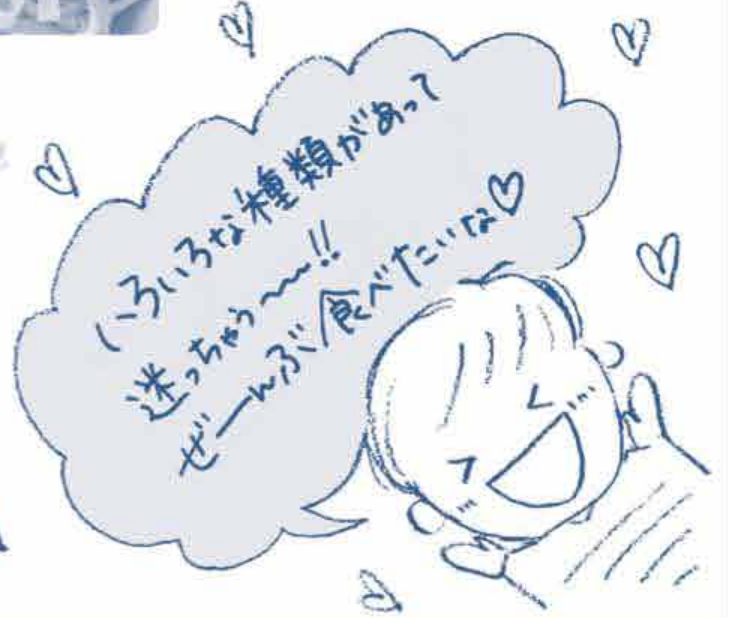 いろいろな種類があって
迷っちゃう〜〜!!
ぜーんぶ食べたいな♡